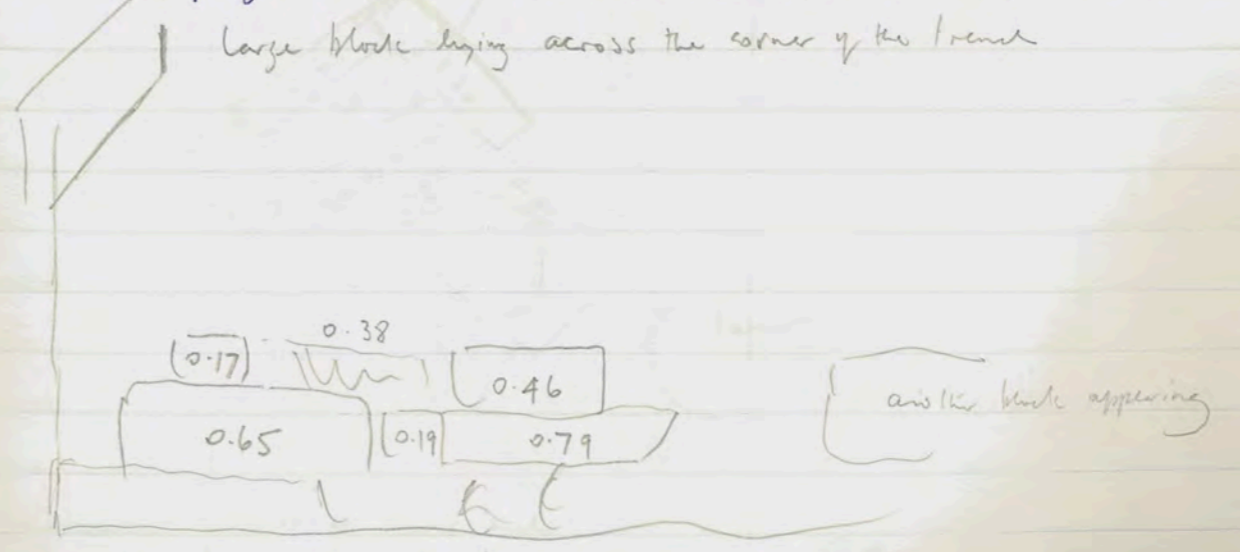 large block lying across the corner of the trench
0.38
0.17
0.46
0.65
0.19
0.79
another block appearing